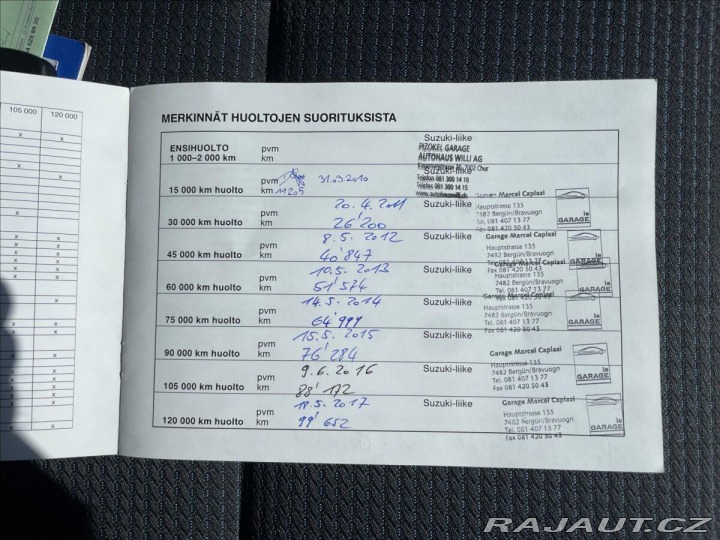 105 000 120 000
MERKINNÄT HUOLTOJEN SUORITUKSISTA
ENSIHUOLTO pvm Suzuki-liike
1 000–2 000 km) km
PIZOKEL GARAGE
AUTOHAUS WILLI AG
7002 Chur
Telefon 081 300 14 18
Telefax 081 300 14 15
www.autohauswilli.ch
pvm 31.03.2010 Suzuki-liike
15 000 km huolto km 11205
Garage Marcel Caplazi
Hauptstrasse 135
7482 Bergün/Bravuogn
Tel. 081 407 13 77
Fax 081 420 50 43
la GARAGE
pvm 20.4.2011 Suzuki-liike
30 000 km huolto km 26'200
Garage Marcel Caplazi
Hauptstrasse 135
7482 Bergün/Bravuogn
Tel. 081 407 13 77
Fax 081 420 50 43
la GARAGE
pvm 8.5.2012 Suzuki-liike
45 000 km huolto km 40'847
Garage Marcel Caplazi
Hauptstrasse 135
7482 Bergün/Bravuogn
Tel. 081 407 13 77
pvm 10.5.2013 Suzuki-liike
60 000 km huolto km 51'574
Garage Marcel Caplazi
Hauptstrasse 135
7482 Bergün/Bravuogn
Tel. 081 407 13 77
Fax 081 420 50 43
la GARAGE
pvm 14.5.2014 Suzuki-liike
75 000 km huolto km 64'999
pvm 15.5.2015 Suzuki-liike
90 000 km huolto km 76'284
Garage Marcel Caplazi
Hauptstrasse 135
7482 Bergün/Bravuogn
Tel. 081 407 13 77
Fax 081 420 50 43
la GARAGE
pvm 9.6.2016 Suzuki-liike
105 000 km huolto km 88'172
Garage Marcel Caplazi
Hauptstrasse 135
7482 Bergün/Bravuogn
Tel. 081 407 13 77
Fax 081 420 50 43
la GARAGE
pvm 5.2017 Suzuki-liike
120 000 km huolto km 99'652
RAJAUT.CZ